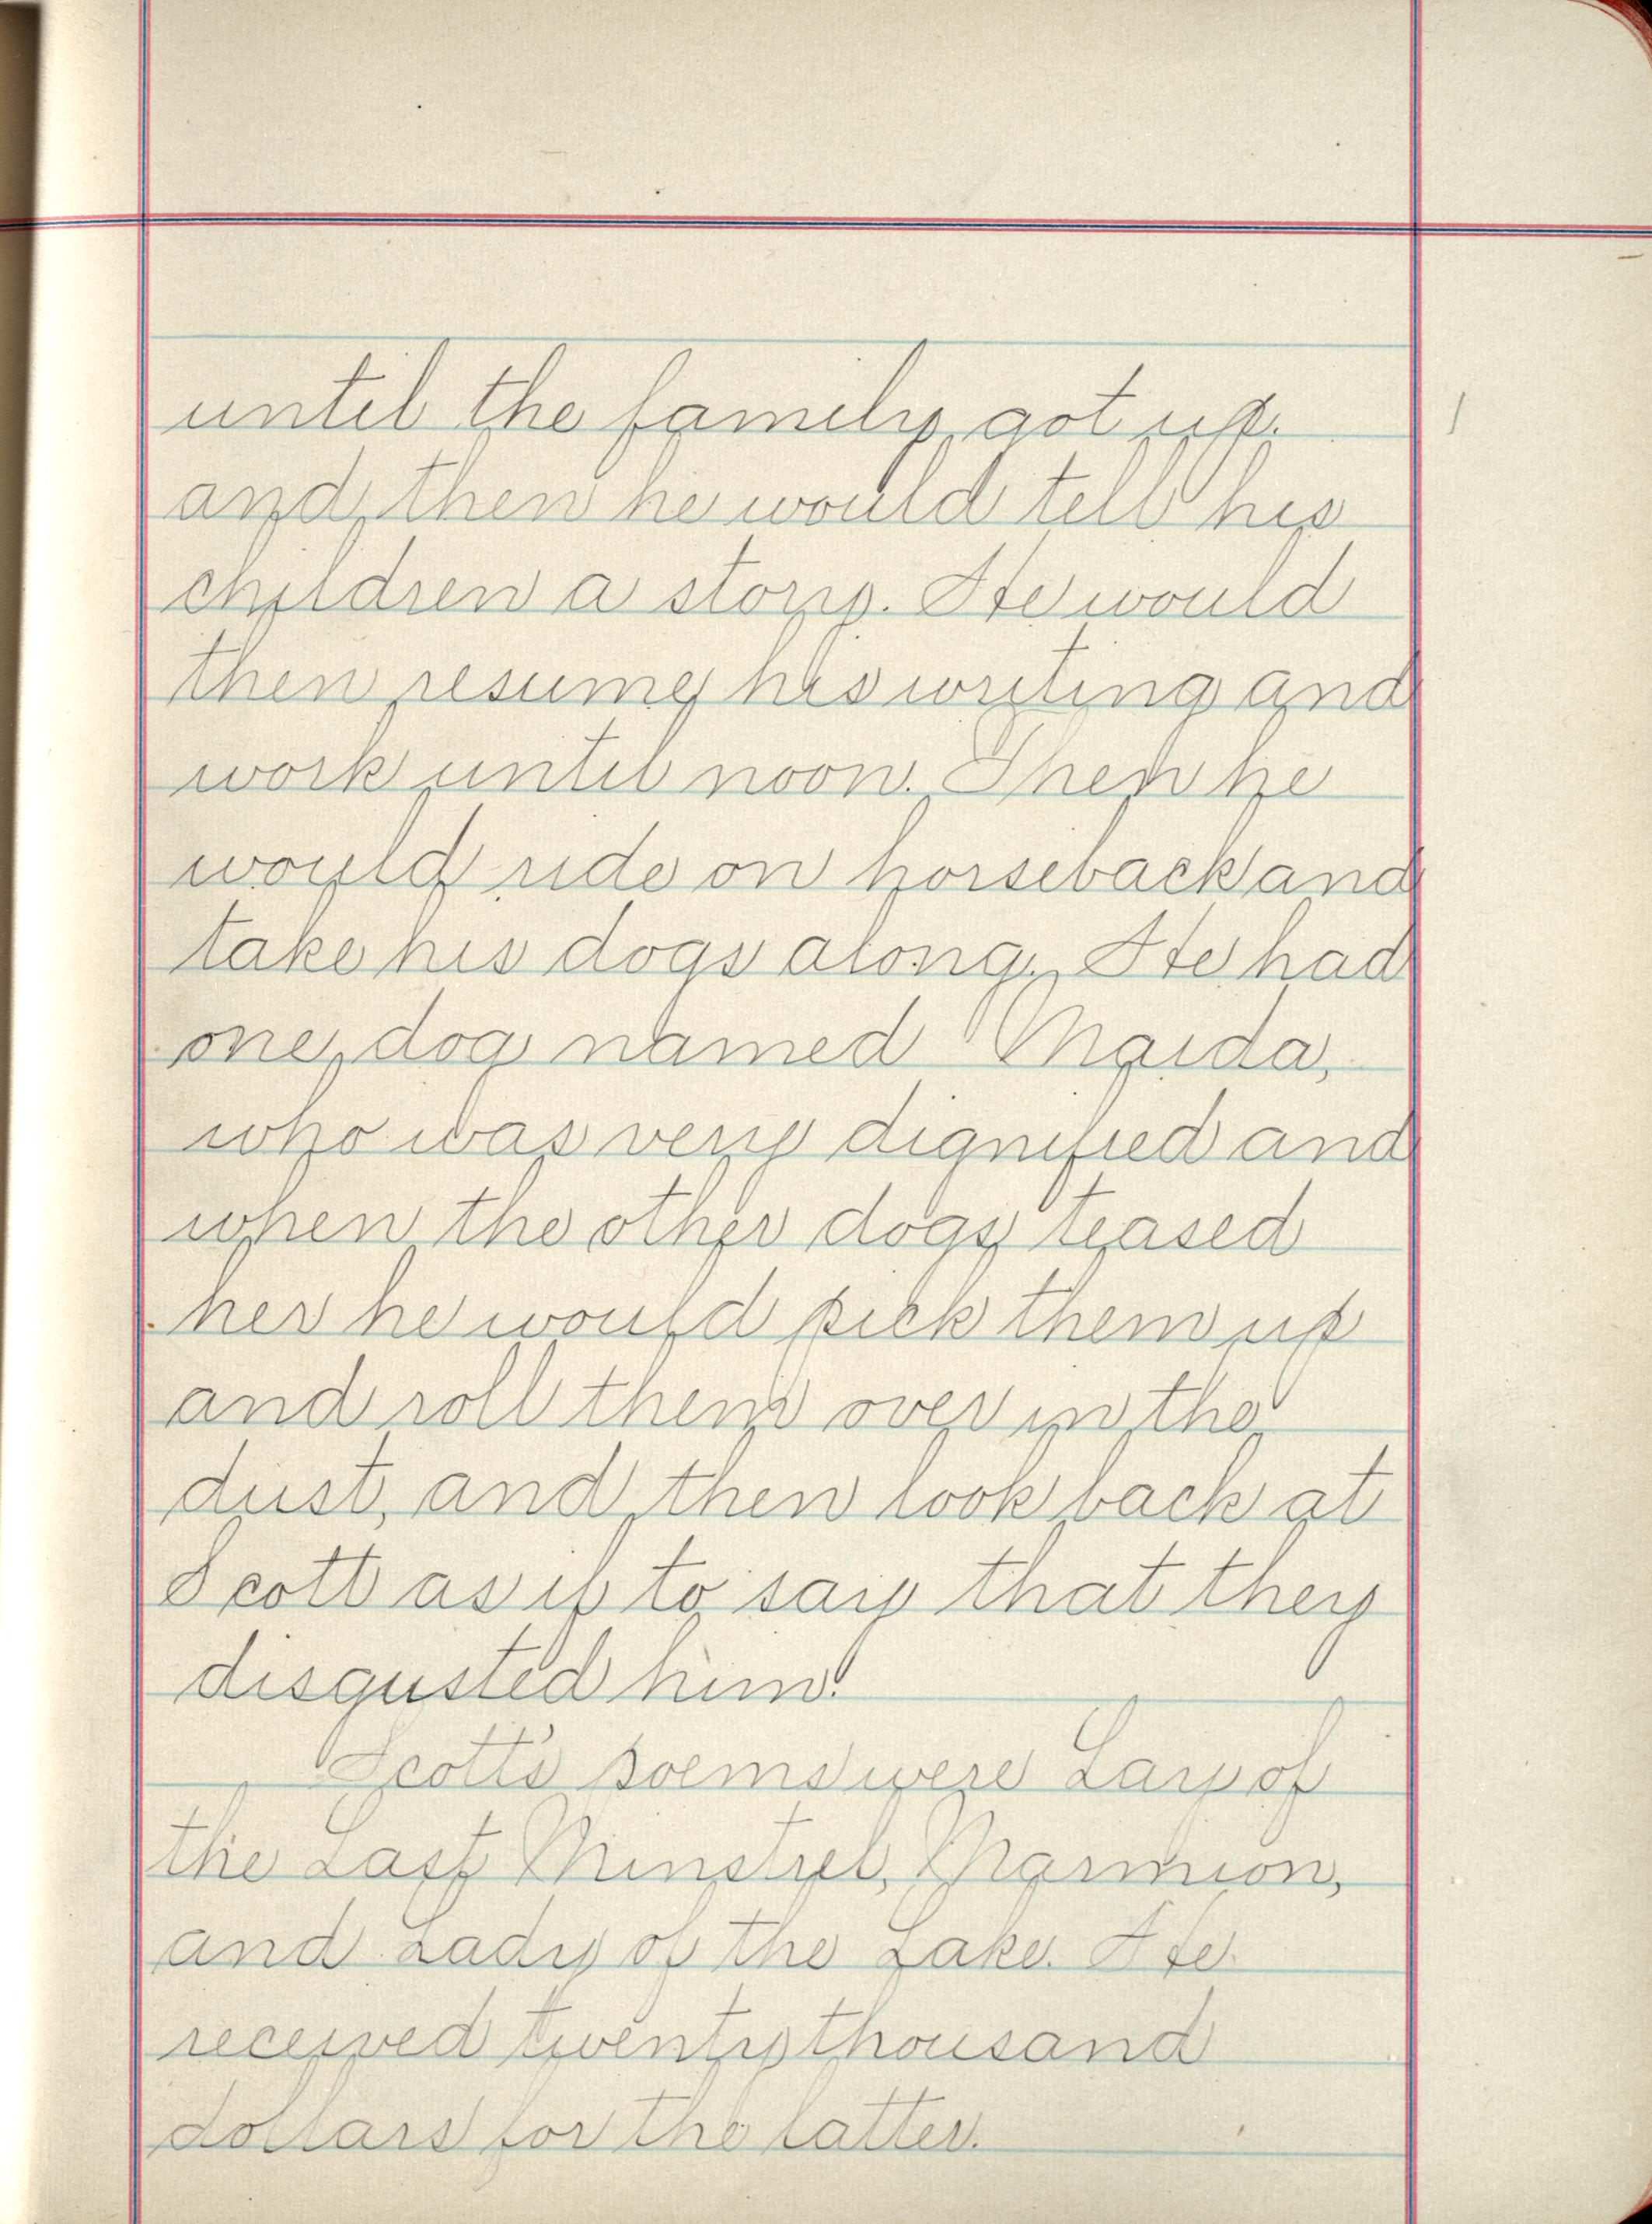 until the family got up.
and then he would tell his
children a story. He would
then resume his writing and
work until noon. Then he
would ride on horseback and
take his dogs along. He had
one dog named Maida,
who was very dignified and
when the other dogs teased
her he would pick them up
and roll them over in the
dust, and then look back at
Scott as if to say that they
disgusted him!
Scott's poems were Lay of
the Last Minstrel, Marmion,
and Lady of the Lake. He
received twenty thousand
dollars for the latter.